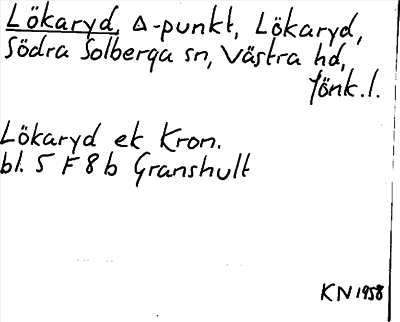 Lökaryd, Δ-punkt, Lökaryd,
Södra Solberga sn, Västra hd,
Jönk.l.
Lökaryd ek Kron.
bl. 5 F 8 b Granshult
KN 1958